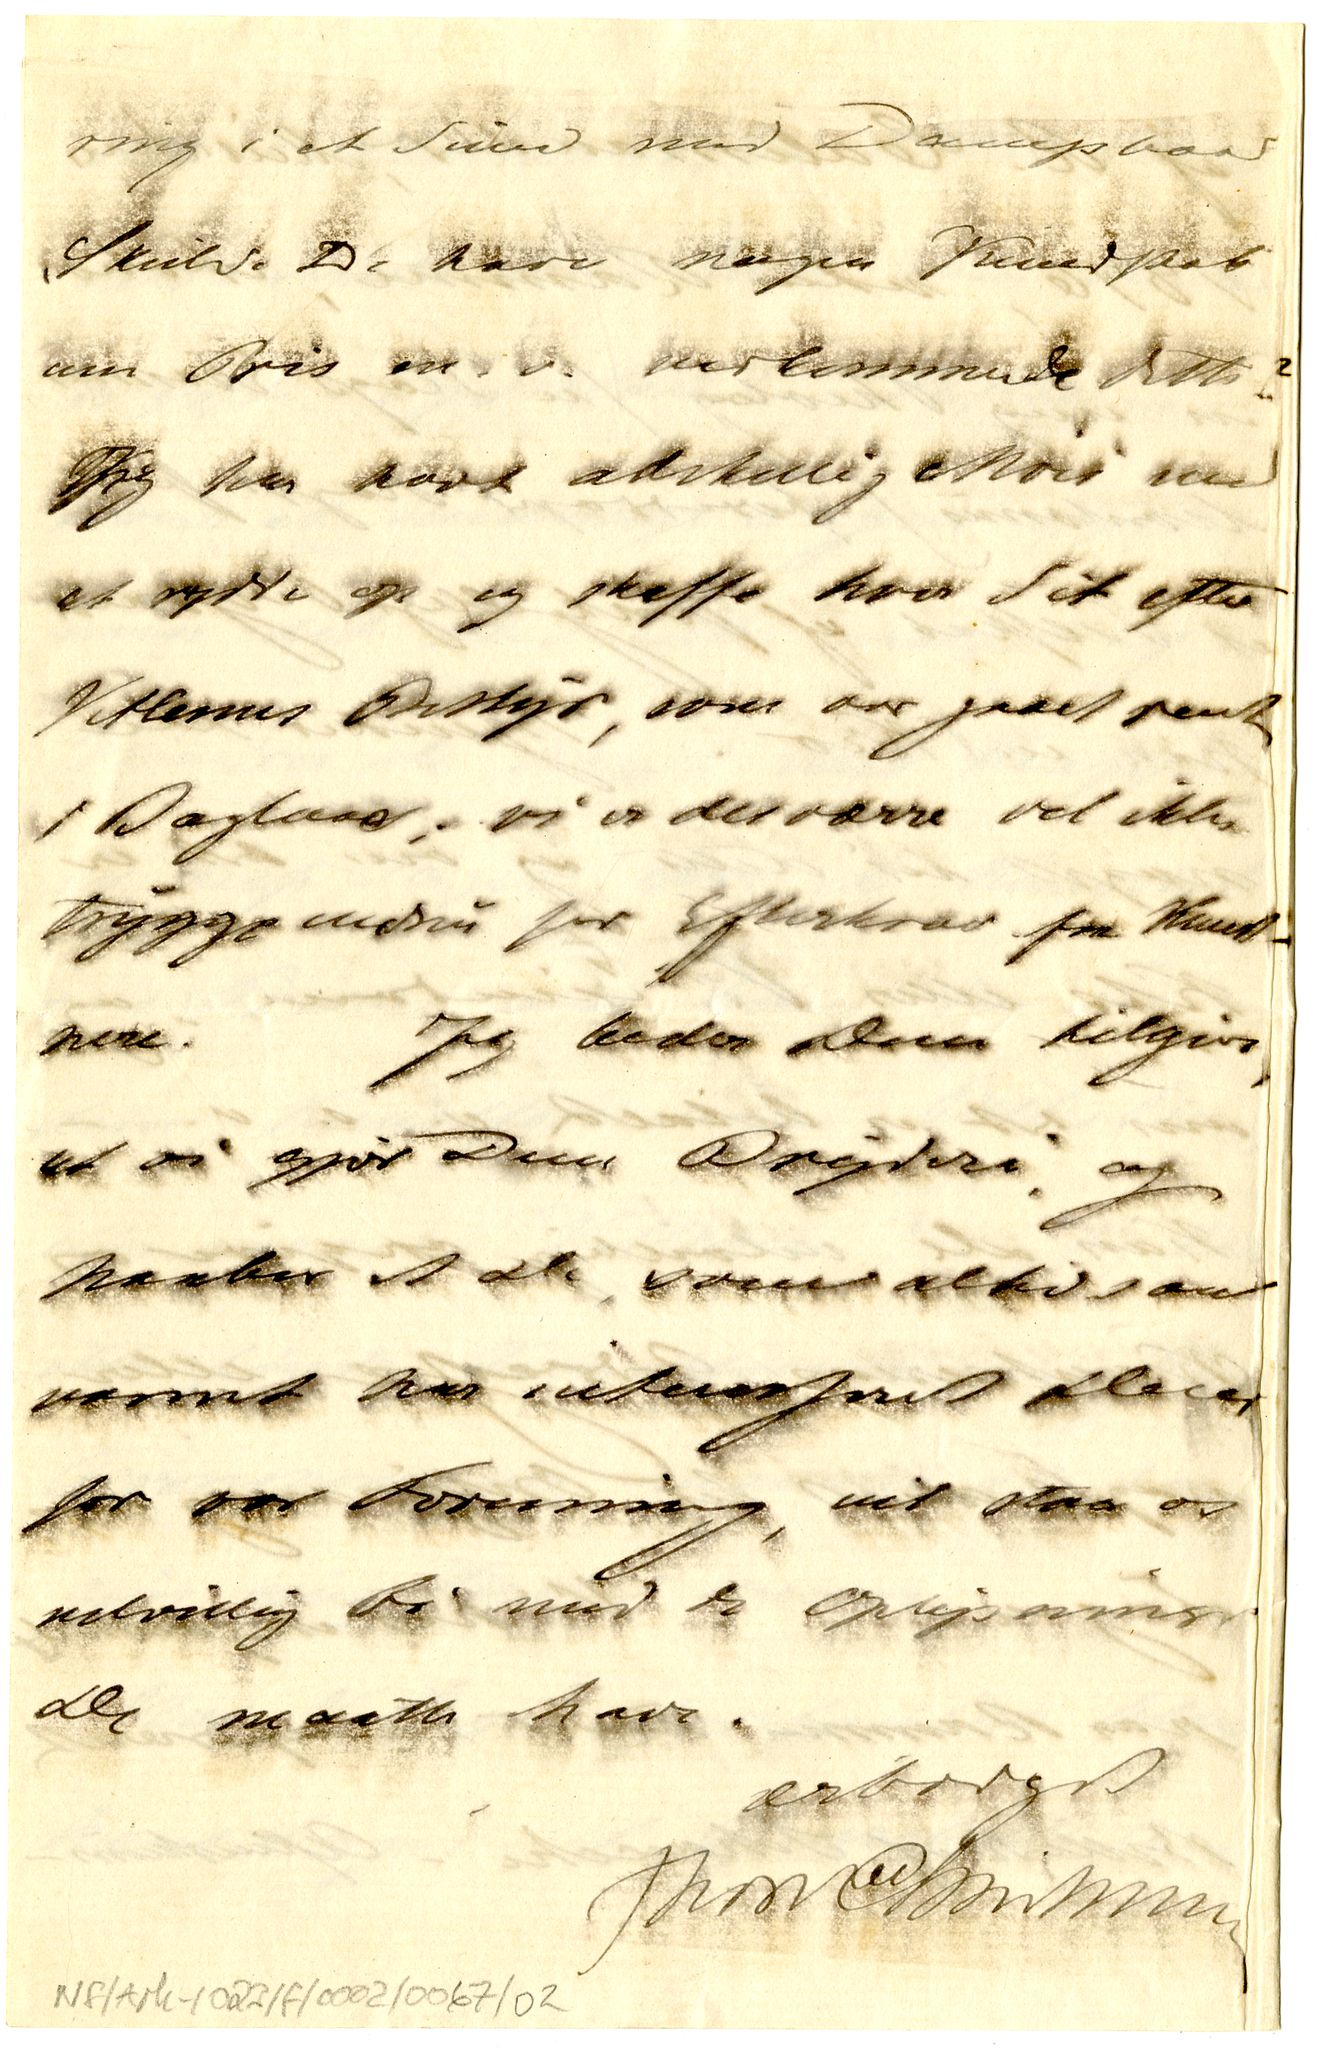 ring i et Sund med Dampbaad
Skulde De have nogen Kundskab
om Pris m. v. vedkommende dette?
Jeg har havt adskillig Moie med
at rydde op og skaffe hver Sit efter
Bestyr, som var gaaet rent
i Baglaas; vi er desværre vel ikke
trygge endnu for Efterkrav fra Kunst-
nere. Jeg beder Dem tilgive,
at vi gjør Dem Bryderi, og
haaber at De, som altid saa
varmt har interesseret Dem
for vor Forening, vil staa os
velvillig bi med de Oplysninger
De maatte have.
ærbødigst
NF/Ark-1022/F/0002/0067/02